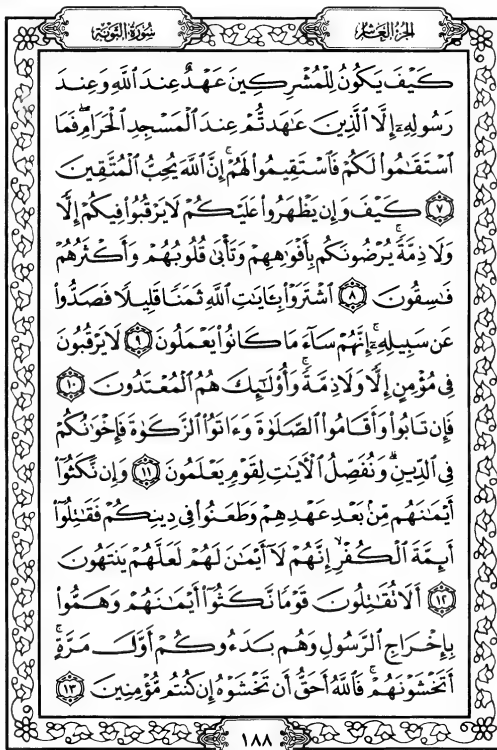 سُورَةُ التَّوْبَةِ
الجُزءُ العَاشِرُ
كَيْفَ يَكُونُ لِلْمُشْرِكِينَ عَهْدٌ عِندَ اللَّهِ وَعِندَ
رَسُولِهِۦٓ إِلَّا الَّذِينَ عَٰهَدتُّمْ عِندَ الْمَسْجِدِ الْحَرَامِ ۖ فَمَا
اسْتَقَٰمُوا۟ لَكُمْ فَاسْتَقِيمُوا۟ لَهُمْ ۚ إِنَّ اللَّهَ يُحِبُّ الْمُتَّقِينَ
٧ كَيْفَ وَإِن يَظْهَرُوا۟ عَلَيْكُمْ لَا يَرْقُبُوا۟ فِيكُمْ إِلًّا
وَلَا ذِمَّةً ۚ يُرْضُونَكُم بِأَفْوَٰهِهِمْ وَتَأْبَىٰ قُلُوبُهُمْ وَأَكْثَرُهُمْ
فَٰسِقُونَ ٨ اشْتَرَوْا۟ بِـَٔايَٰتِ اللَّهِ ثَمَنًا قَلِيلًا فَصَدُّوا۟
عَن سَبِيلِهِۦٓ ۚ إِنَّهُمْ سَآءَ مَا كَانُوا۟ يَعْمَلُونَ ٩ لَا يَرْقُبُونَ
فِى مُؤْمِنٍ إِلًّا وَلَا ذِمَّةً ۚ وَأُو۟لَٰٓئِكَ هُمُ الْمُعْتَدُونَ ١٠
فَإِن تَابُوا۟ وَأَقَامُوا۟ الصَّلَوٰةَ وَءَاتَوُا۟ الزَّكَوٰةَ فَإِخْوَٰنُكُمْ
فِى الدِّينِ ۗ وَنُفَصِّلُ الْءَايَٰتِ لِقَوْمٍ يَعْلَمُونَ ١١ وَإِن نَّكَثُوٓا۟
أَيْمَٰنَهُم مِّنۢ بَعْدِ عَهْدِهِمْ وَطَعَنُوا۟ فِى دِينِكُمْ فَقَٰتِلُوٓا۟
أَئِمَّةَ الْكُفْرِ ۙ إِنَّهُمْ لَآ أَيْمَٰنَ لَهُمْ لَعَلَّهُمْ يَنتَهُونَ
١٢ أَلَا تُقَٰتِلُونَ قَوْمًا نَّكَثُوٓا۟ أَيْمَٰنَهُمْ وَهَمُّوا۟
بِإِخْرَاجِ الرَّسُولِ وَهُم بَدَءُوكُمْ أَوَّلَ مَرَّةٍ ۚ
أَتَخْشَوْنَهُمْ ۚ فَاللَّهُ أَحَقُّ أَن تَخْشَوْهُ إِن كُنتُم مُّؤْمِنِينَ ١٣
١٨٨